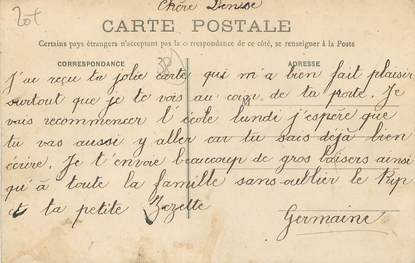 20f
Chère Denise
CARTE POSTALE
Certains pays étrangers n'acceptant pas la correspondance de ce côté, se renseigner à la Poste
CORRESPONDANCE
ADRESSE
J'ai reçu ta jolie carte qui m'a bien fait plaisir
surtout que je te vois au coin de ta porte. Je
vais recommencer l'école lundi j'espère que
tu vas aussi y aller car tu sais déjà bien
écrire. Je t'envoie beaucoup de gros baisers ainsi
qu'à toute la famille sans oublier le Kip
et ta petite Zezette
Germaine